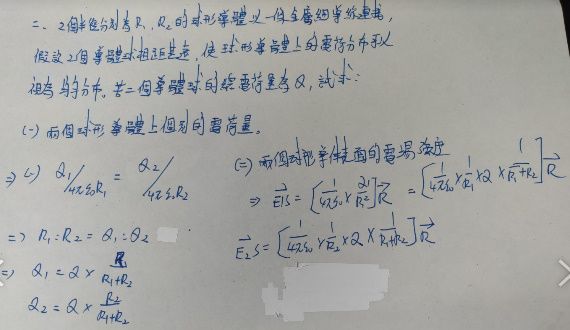 二、2個半徑分別為R₁、R₂的球形導體以一個金屬細導線連接,
假設2個導體球相距甚遠,使球形導體上的電荷分布可以
視為均勻分布。若二個導體球的總電荷量為Q,試求:
(一) 兩個球形導體上個別的電荷量。
⇒ (-) Q₁/4πε₀R₁ = Q₂/4πε₀R₂
⇒ R₁:R₂ = Q₁:Q₂
⇒ Q₁ = Q × R₁/R₁+R₂
Q₂ = Q × R₂/R₁+R₂
(二) 兩個球形導體表面的電場強度
⇒ E₁s = [1/4πε₀ × Q₁/R₁²] R = [1/4πε₀ × 1/R₁ × Q × 1/R₁+R₂] R
E₂s = [1/4πε₀ × 1/R₂ × Q × 1/R₁+R₂] R